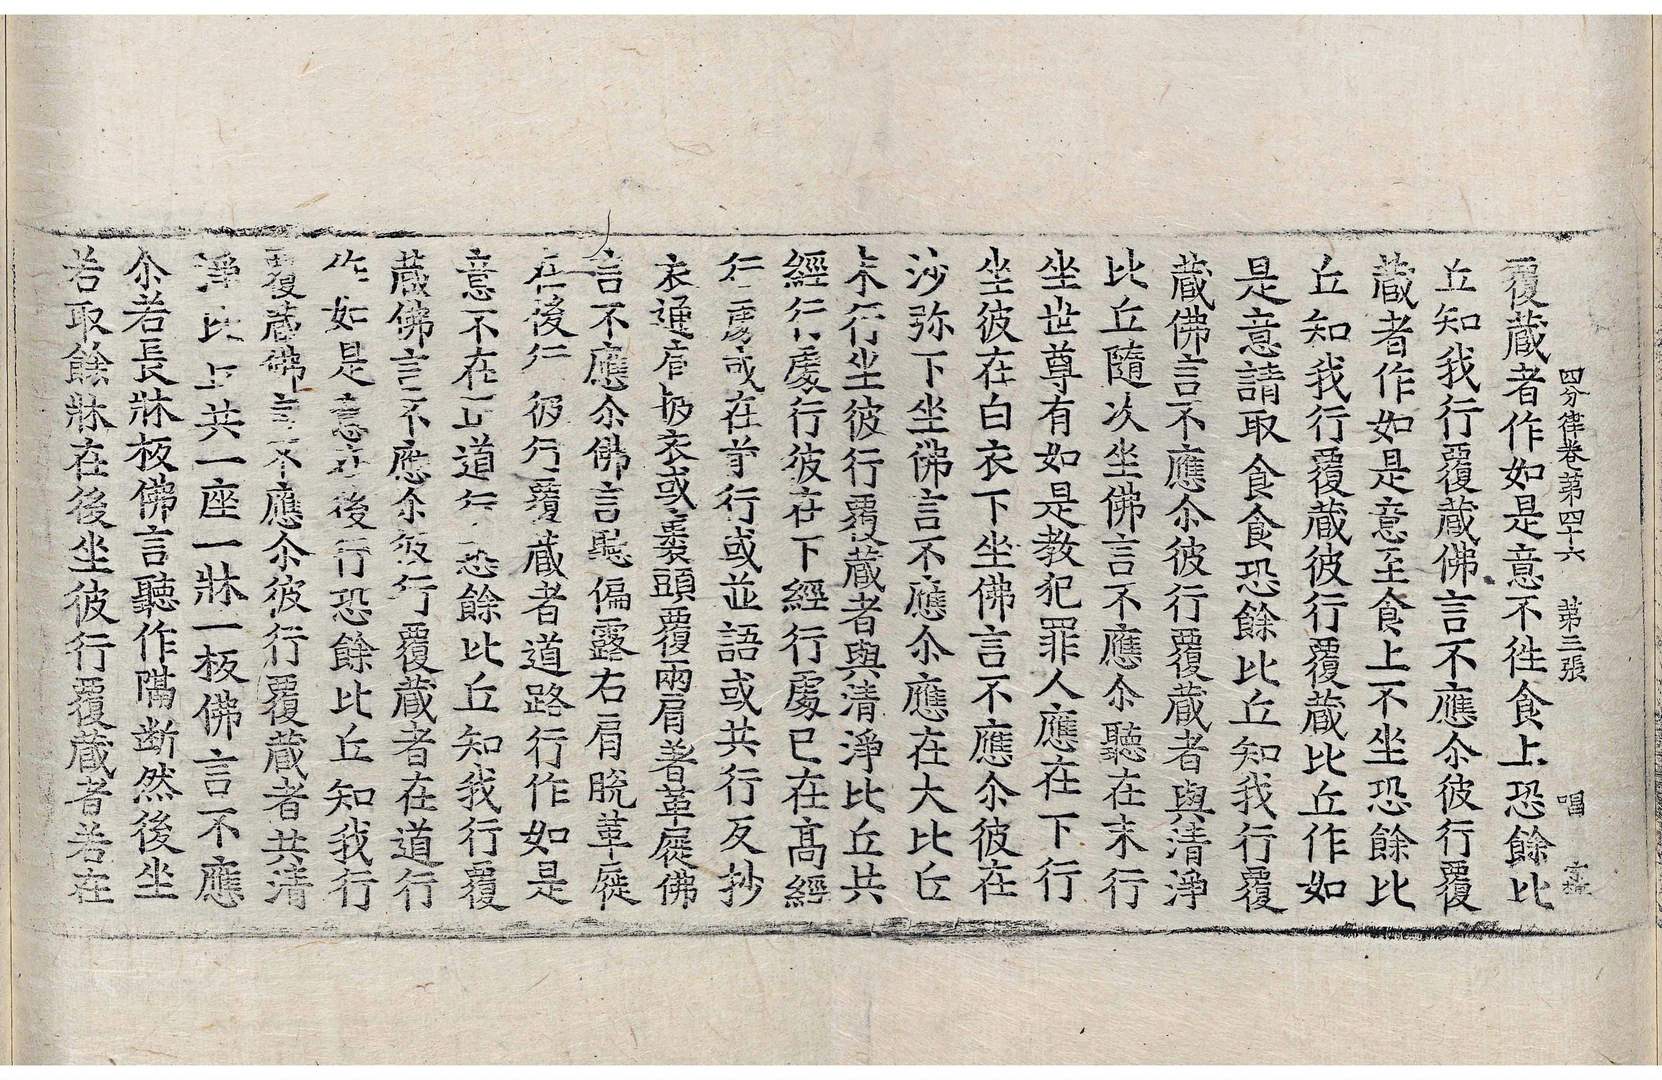 四分律卷第四十六 第三張 唱
覆蔵者作如是意不徃食上恐餘比
丘知我行覆蔵佛言不應尒彼行覆
蔵者作如是意至食上不坐恐餘比
丘知我行覆蔵彼行覆蔵比丘作如
是意請取食食恐餘比丘知我行覆
蔵佛言不應尒彼行覆蔵者與清淨
比丘隨次坐佛言不應尒聽在末行
坐世尊有如是教犯罪人應在下行
坐彼在白衣下坐佛言不應尒彼在
沙弥下坐佛言不應尒應在大比丘
末行坐彼行覆蔵者與清淨比丘共
經行處行彼在下經行處已在髙經
行處或在前行或並語或共行反抄
衣通肩披衣或褁頭覆兩肩著革屣佛
言不應尒佛言聽偏露右肩脫革屣
在後行彼行覆蔵者道路行作如是
意不在道行恐餘比丘知我行覆
蔵佛言不應尒彼行覆蔵者在道行
作如是意在後行恐餘比丘知我行
覆蔵佛言不應尒彼行覆蔵者共清
淨比丘共一座一牀一板佛言不應
尒若長牀板佛言聽作隔斷然後坐
若取餘牀在後坐彼行覆蔵者若在